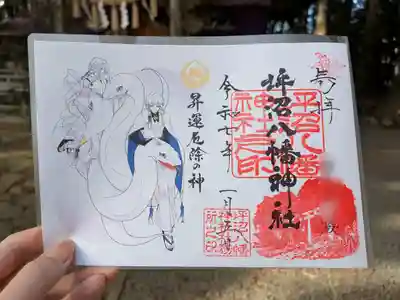 奉拝
坪沼八幡神社
平沼八幡
神社之印
令和七年
一月
昇運厄除の神
坪沼八幡